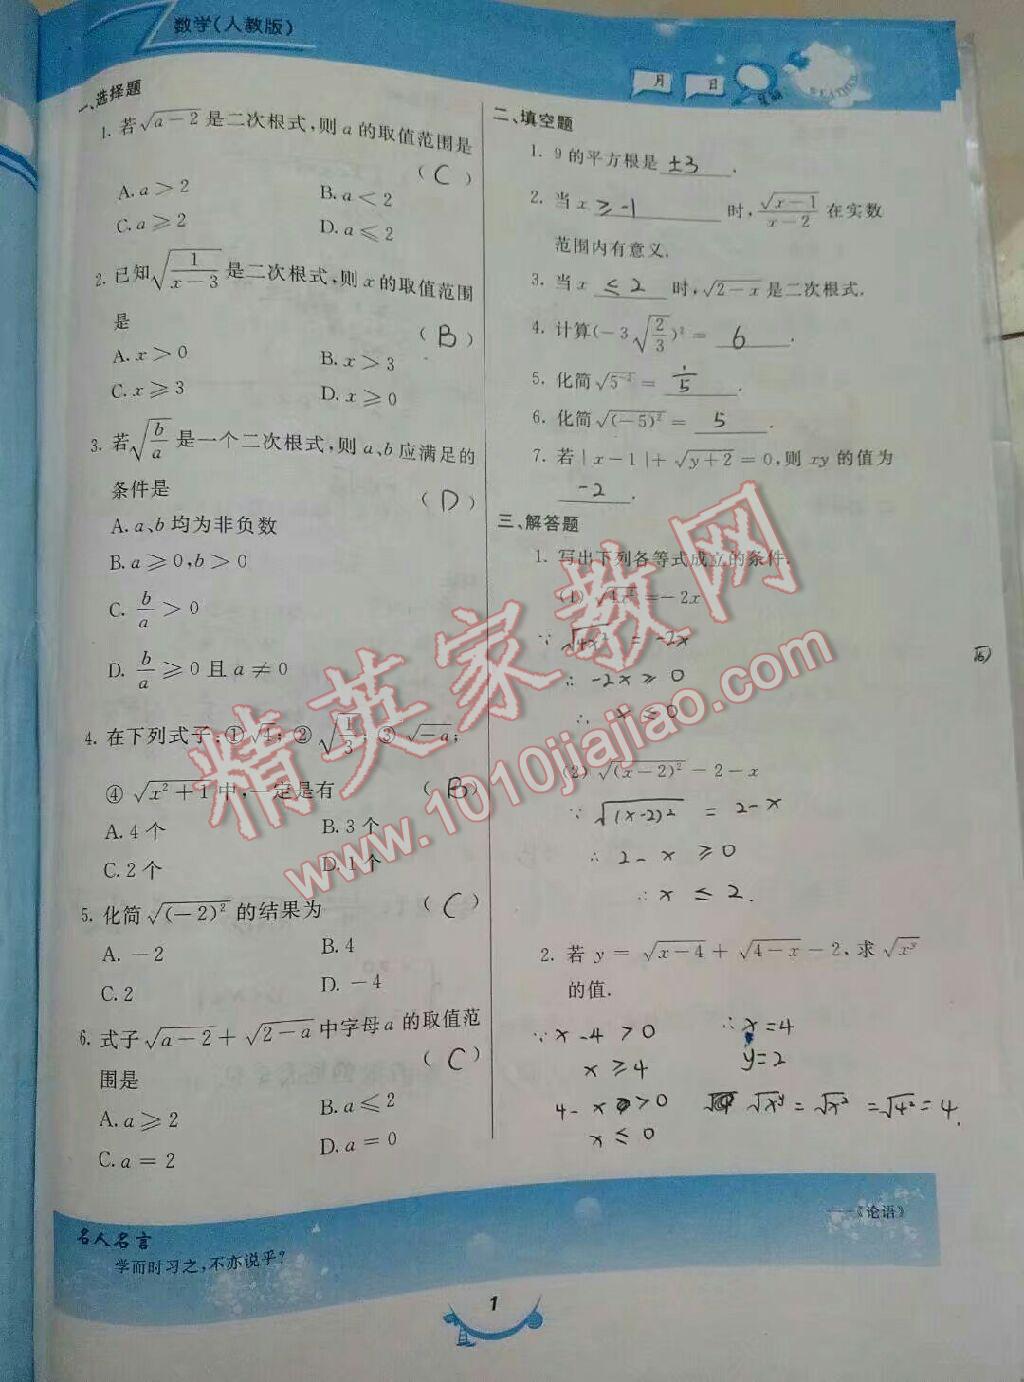 数学(人教版)
月 日
一、选择题
1. 若√(a-2)是二次根式,则a的取值范围是
( C )
A. a>2 B. a<2
C. a≥2 D. a≤2
2. 已知√(1/(x-3))是二次根式,则x的取值范围
是 ( B )
A. x>0 B. x>3
C. x≥3 D. x≥0
3. 若√(b/a)是一个二次根式,则a、b应满足的
条件是 ( D )
A. a、b均为非负数
B. a≥0,b>0
C. b/a>0
D. b/a≥0且a≠0
4. 在下列式子:①√4;②√(1/3);③√(-a);
④√(x²+1)中,一定是有 ( B )
A. 4个 B. 3个
C. 2个 D. 1个
5. 化简√((-2)²)的结果为 ( C )
A. -2 B. 4
C. 2 D. -4
6. 式子√(a-2)+√(2-a)中字母a的取值范
围是 ( C )
A. a≥2 B. a≤2
C. a=2 D. a=0
二、填空题
1. 9的平方根是 ±3 .
2. 当x ≥-1 时,√(x-1)/(x-2)在实数
范围内有意义.
3. 当x ≤2 时,√(2-x)是二次根式.
4. 计算(-3√(2/3))²= 6 .
5. 化简 = 1/5 .
6. 化简√((-5)²)= 5 .
7. 若|x-1|+√(y+2)=0,则xy的值为
-2 .
三、解答题
1. 写出下列各等式成立的条件.
(1)√(4x²)=-2x
∵ √(4x²) = -2x
∴ -2x≥0
∴ x≤0
(2)√((x-2)²)-2-x
∵ √((x-2)²) = 2-x
∴ 2-x≥0
∴ x≤2.
2. 若y=√(x-4)+√(4-x)-2、求√(x^y)
的值.
∵x-4>0 ∴x=4
x≥4 y=2
4-x>0 √(x^y)=√(x²)=√(4²)=4.
x≤0
名人名言
学而时习之,不亦说乎?
——《论语》
1
精英家教网
www.1010jiajiao.com